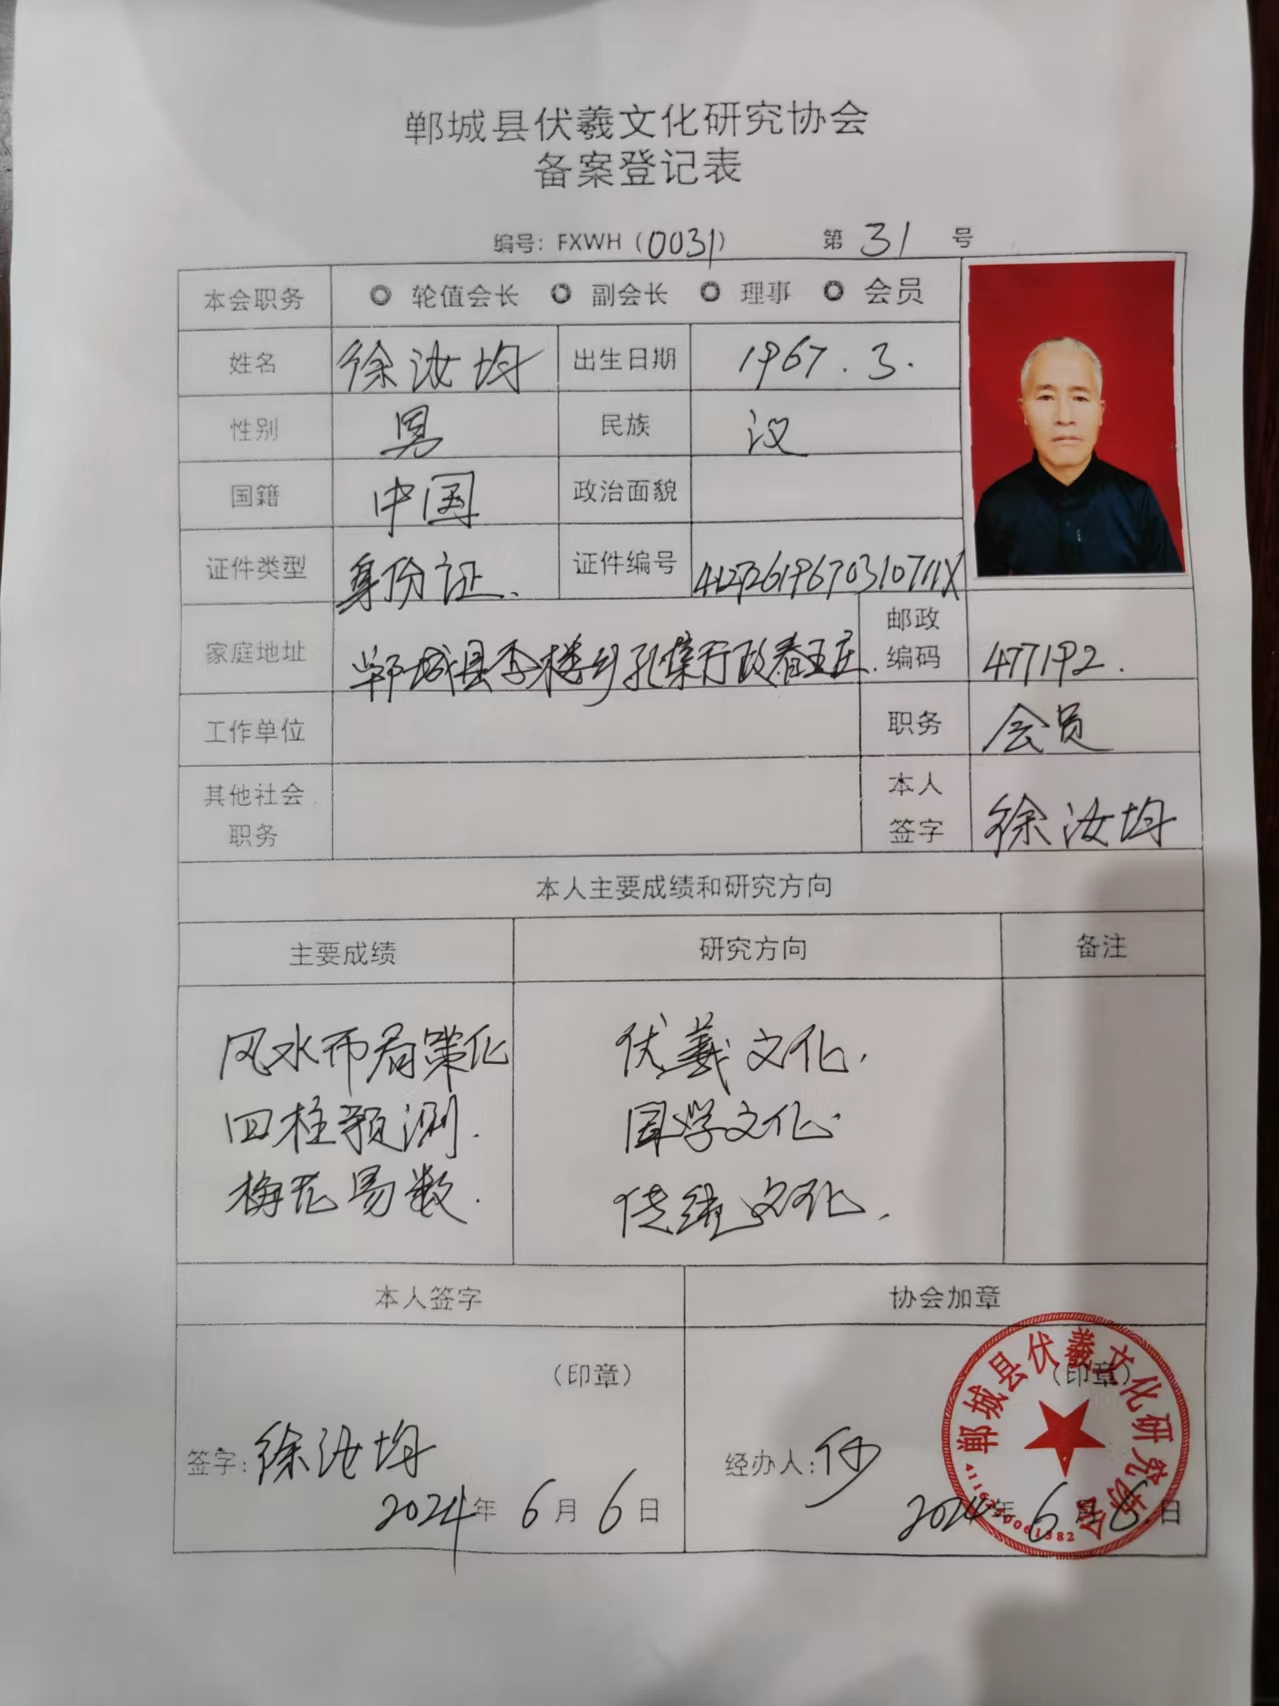 郸城县伏羲文化研究协会
备案登记表
编号: FXWH (0031) 第 31 号
本会职务 轮值会长 副会长 理事 会员
姓名 徐汝均 出生日期 1967.3.
性别 男 民族 汉
国籍 中国 政治面貌
证件类型 身份证. 证件编号
家庭地址 郸城县李楼乡孔集行政春王庄. 邮政编码 477192.
工作单位 职务 会员
其他社会职务 本人签字 徐汝均
本人主要成绩和研究方向
主要成绩 研究方向 备注
风水布局策化 伏羲文化.
四柱预测. 国学文化.
梅花易数. 传统文化.
本人签字 协会加章
(印章) (印章)
签字: 徐汝均 经办人:
2024年 6月 6日 2024年 6月 6日
郸城县伏羲文化研究协会